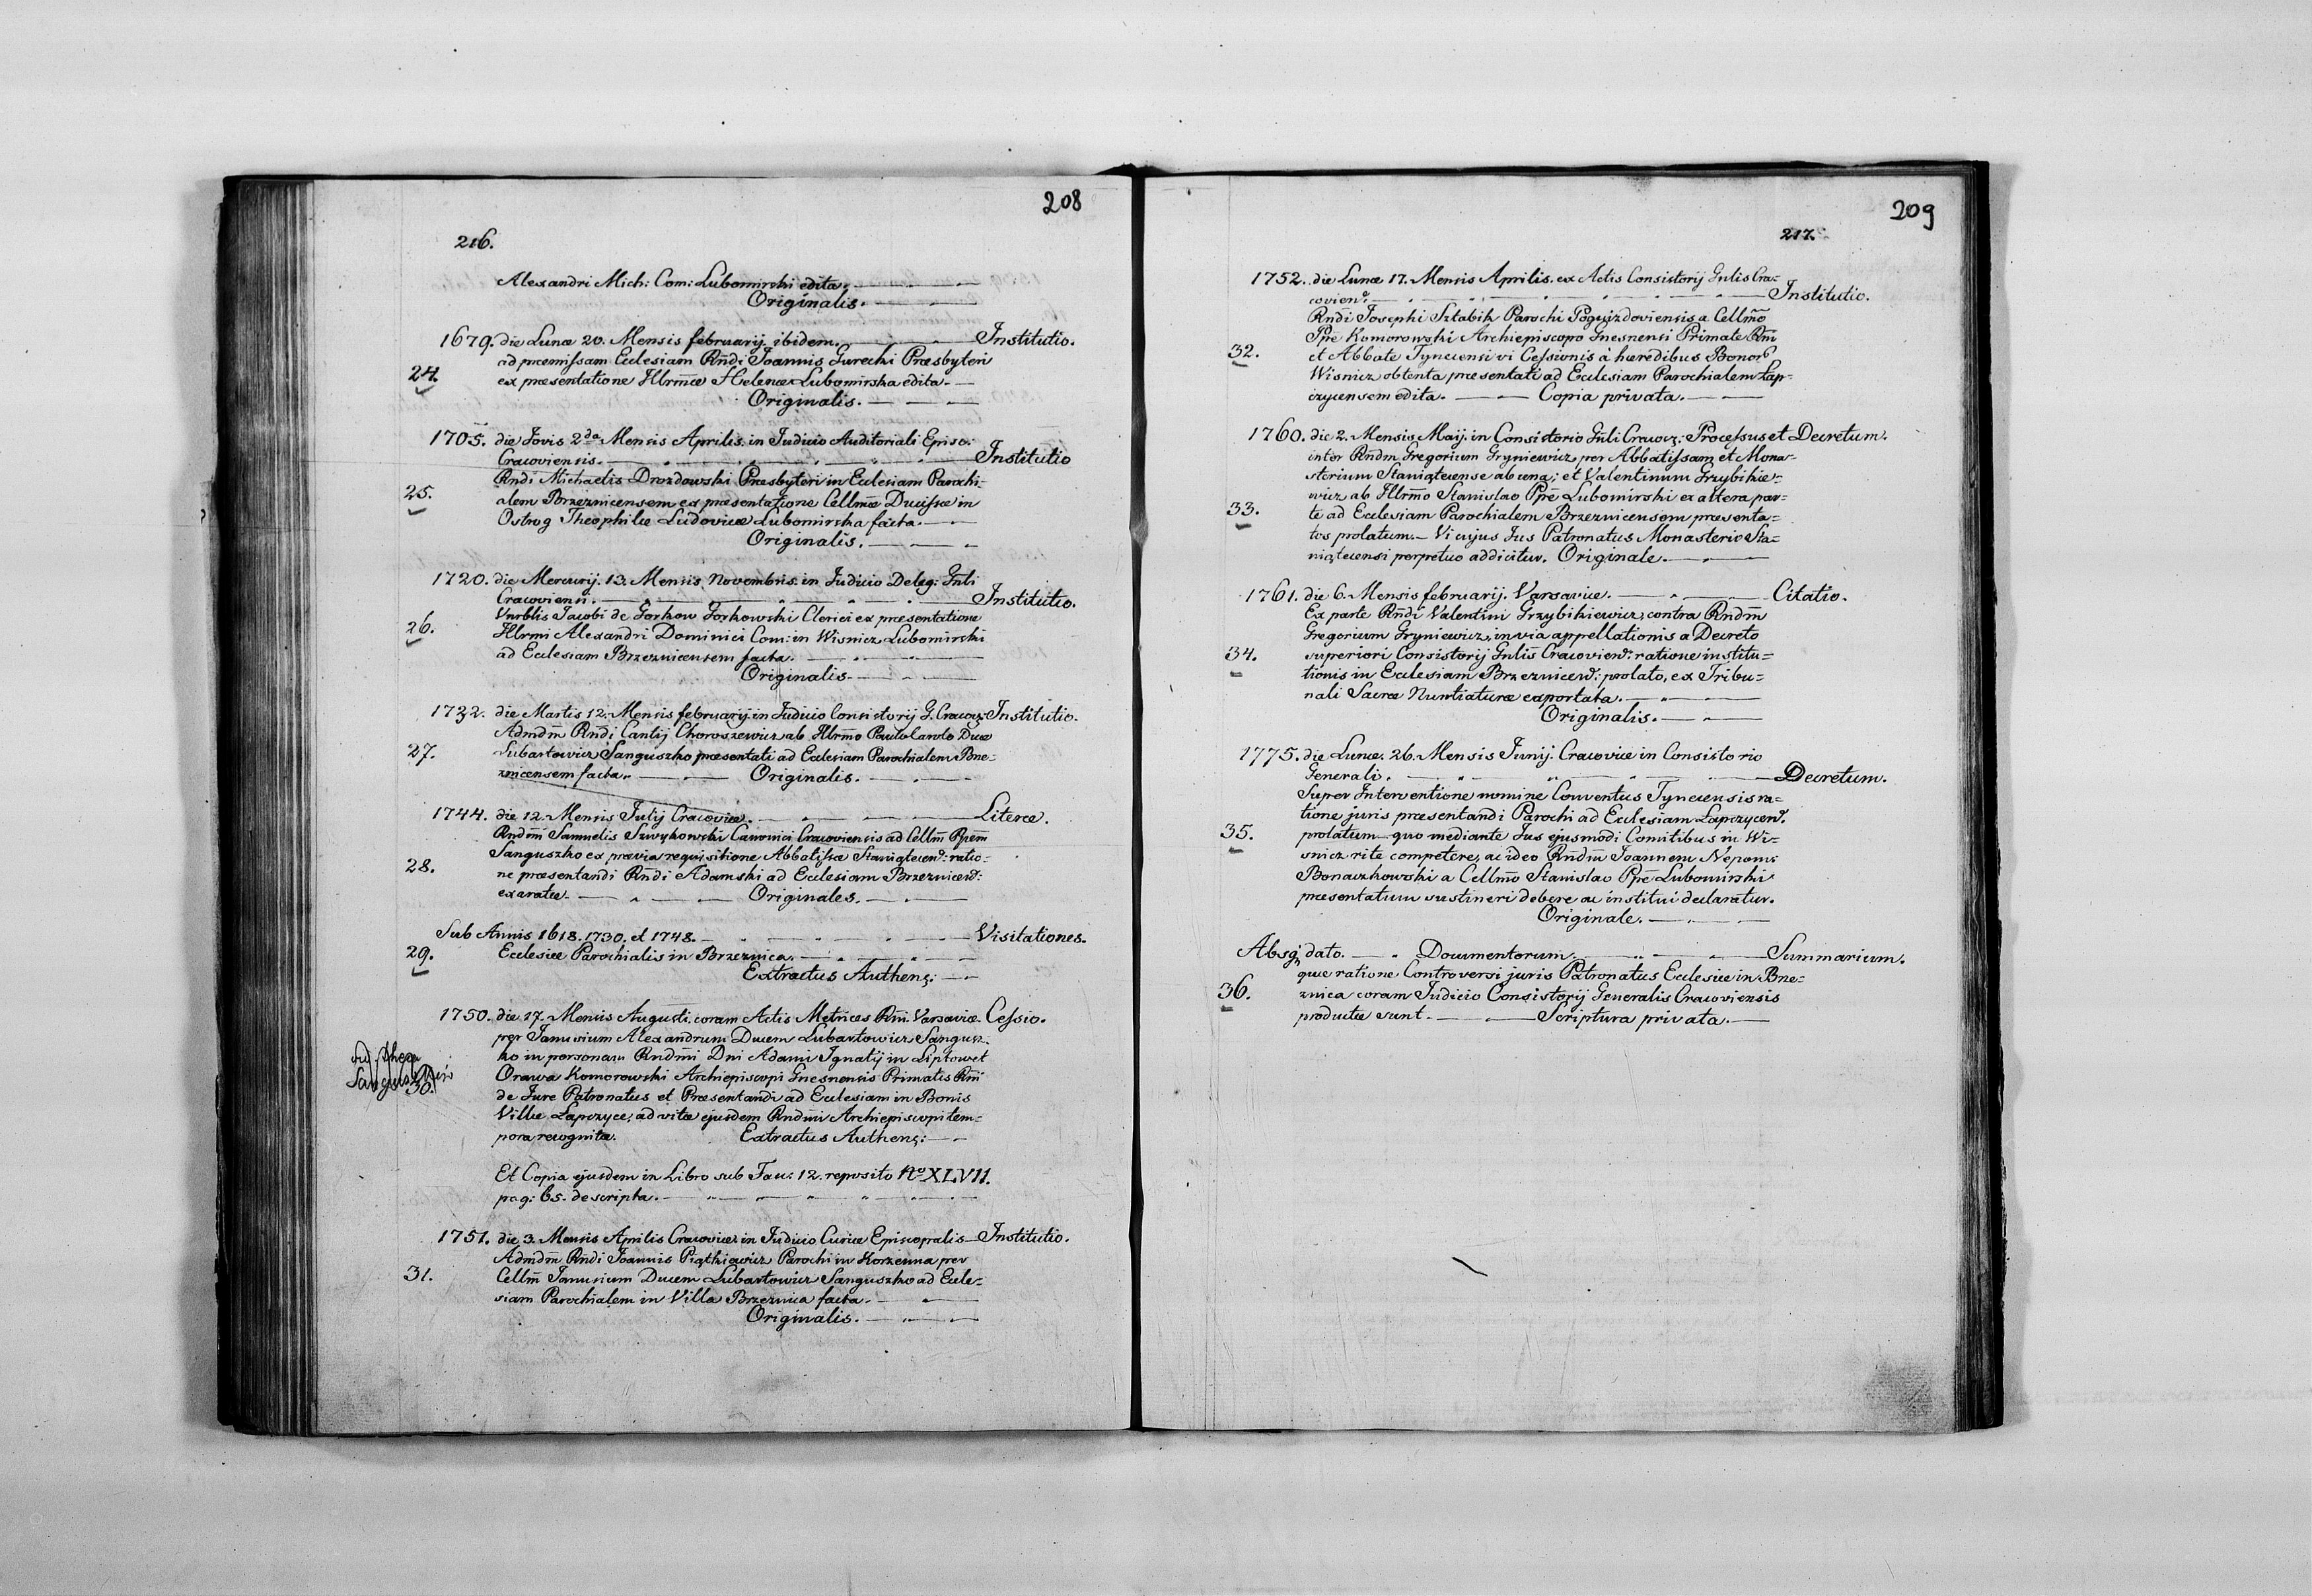 208
216.
Alexandri Mich: Com: Lubomirski edita.
Originalis.
1679. die Lunæ 20. Mensis februarij ibidem. Institutio.
ad præmissam Ecclesiam Rñdi Joannis Gurecki Præsbyteri
24. ex præsentatione Illrmæ Helenæ Lubomirska edita.
Originalis.
1705. die Jovis 2da Mensis Aprilis in Judicio Auditoriali Episc:
Cracoviensis. Institutio
Rñdi Michaelis Drozdowski Præsbyteri in Ecclesiam Parochi-
25. alem Brzeznicensem ex præsentatione Cellmæ Ducissæ in
Ostrog Theophilæ Ludovicæ Lubomirska facta.
Originalis.
1720. die Mercurij 13. Mensis Novembris in Judicio Deleg: Gnli
Cracoviensi. Institutio.
Vnrblis Jacobi de Gorkow Gorkowski Clerici ex præsentatione
26. Illrmi Alexandri Dominici Com: in Wisnicz Lubomirski
ad Ecclesiam Brzeznicensem facta.
Originalis.
1732. die Martis 12. Mensis februarij in Judicio Consistorij G. Cracov: Institutio.
Admdm Rñdi Cantij Choroszewicz ab Illrmo Paulo Carolo Duce
27. Lubartowicz Sanguszko præsentati ad Ecclesiam Parochialem Brze-
znicensem facta. Originalis.
1744. die 12. Mensis Julij Cracoviæ. Literæ.
Rndm̃ Samuelis Szwykowski Canonici Cracoviensis ad Cellm̃ Ppem
Sanguszko ex prævia requisitione Abbatissæ Staniątecen: ratio-
28. ne præsentandi Rñdi Adamski ad Ecclesiam Brzeznicen:
exaratæ. Originales.
Sub Annis 1618. 1730. et 1748. Visitationes.
29. Ecclesiæ Parochialis in Brzeznica.
Extractus Authen:
1750. die 17. Mensis Augusti coram Actis Metrices Rñi Varsaviæ. Cessio.
per Janusium Alexandrum Ducem Lubartowicz Sangusz-
ko in personam Rndmi Dni Adami Ignatij in Liptowet
30. Orawa Komorowski Archiepiscopi Gnesnensis Primatis Rñi
de Jure Patronatus et Præsentandi ad Ecclesiam in Bonis
Villæ Lapczyce, ad vitæ ejusdem Rndmi Archiepiscopi tem-
pora recognita. Extractus Authen:
Et Copia ejusdem in Libro sub Fas: 12. reposito No XLVII.
pag: 65. descripta.
1751. die 3. Mensis Aprilis Cracoviæ in Judicio Curiæ Episcopalis Institutio.
Admdm Rñdi Joannis Piątkiewicz Parochi in Korzenna per
31. Cellm̃ Janusium Ducem Lubartowicz Sanguszko ad Eccle-
siam Parochialem in Villa Brzeznica facta.
Originalis.
209
217.
1752. die Lunæ 17. Mensis Aprilis ex Actis Consistorij Gnlis Cra-
covien: Institutio.
Rñdi Josephi Sztabik Parochi Pogwizdoviensis a Cellmo
Ppe Komorowski Archiepiscopo Gnesnensi Primate Rñi
32. et Abbate Tynecensi vi Cessionis à hæredibus Bonor
Wisnicz obtenta præsentati ad Ecclesiam Parochialem Łap-
czycensem edita. Copia privata.
1760. die 2. Mensis Maij in Consistorio Gnli Cracov: Processus et Decretum.
inter Rñdm Gregorium Gryniewicz per Abbatissam et Mona-
sterium Staniątecense ab una; et Valentinum Grzybikie-
wicz ab Illrmo Stanislao Ppe Lubomirski ex altera par-
33. te ad Ecclesiam Parochialem Brzeznicensem præsenta-
tos prolatum. Vi cujus Jus Patronatus Monasterio Sta-
niątecensi perpetuo addicitur. Originale.
1761. die 6. Mensis februarij. Varsaviæ. Citatio.
Ex parte Rñdi Valentini Grzybikiewicz, contra Rñdm
Gregorium Gryniewicz, in via appellationis a Decreto
34. superiori Consistorij Gnlis Cracovien: ratione institu-
tionis in Ecclesiam Brzeznicen: prolato, ex Tribu-
nali Sacræ Nuntiaturæ exportata.
Originalis.
1775. die Lunæ. 26. Mensis Junij. Cracoviæ in Consistorio
Generali. Decretum.
Super Interventione nomine Conventus Tynecensis ra-
tione juris præsentandi Parochi ad Ecclesiam Lapczycen:
35. prolatum quo mediante Jus ejusmodi Comitibus in Wi-
snicz rite competere, ac ideo Rñdm Joannem Nepom:
Bonaczkowski a Cellmo Stanislao Ppe Lubomirski
præsentatum sustineri debere ac institui declaratur.
Originale.
Absq dato. Documentorum. Summarium.
quæ ratione Controversi juris Patronatus Ecclesiæ in Brze-
36. znica coram Judicio Consistorij Generalis Cracoviensis
productæ sunt. Scriptura privata.